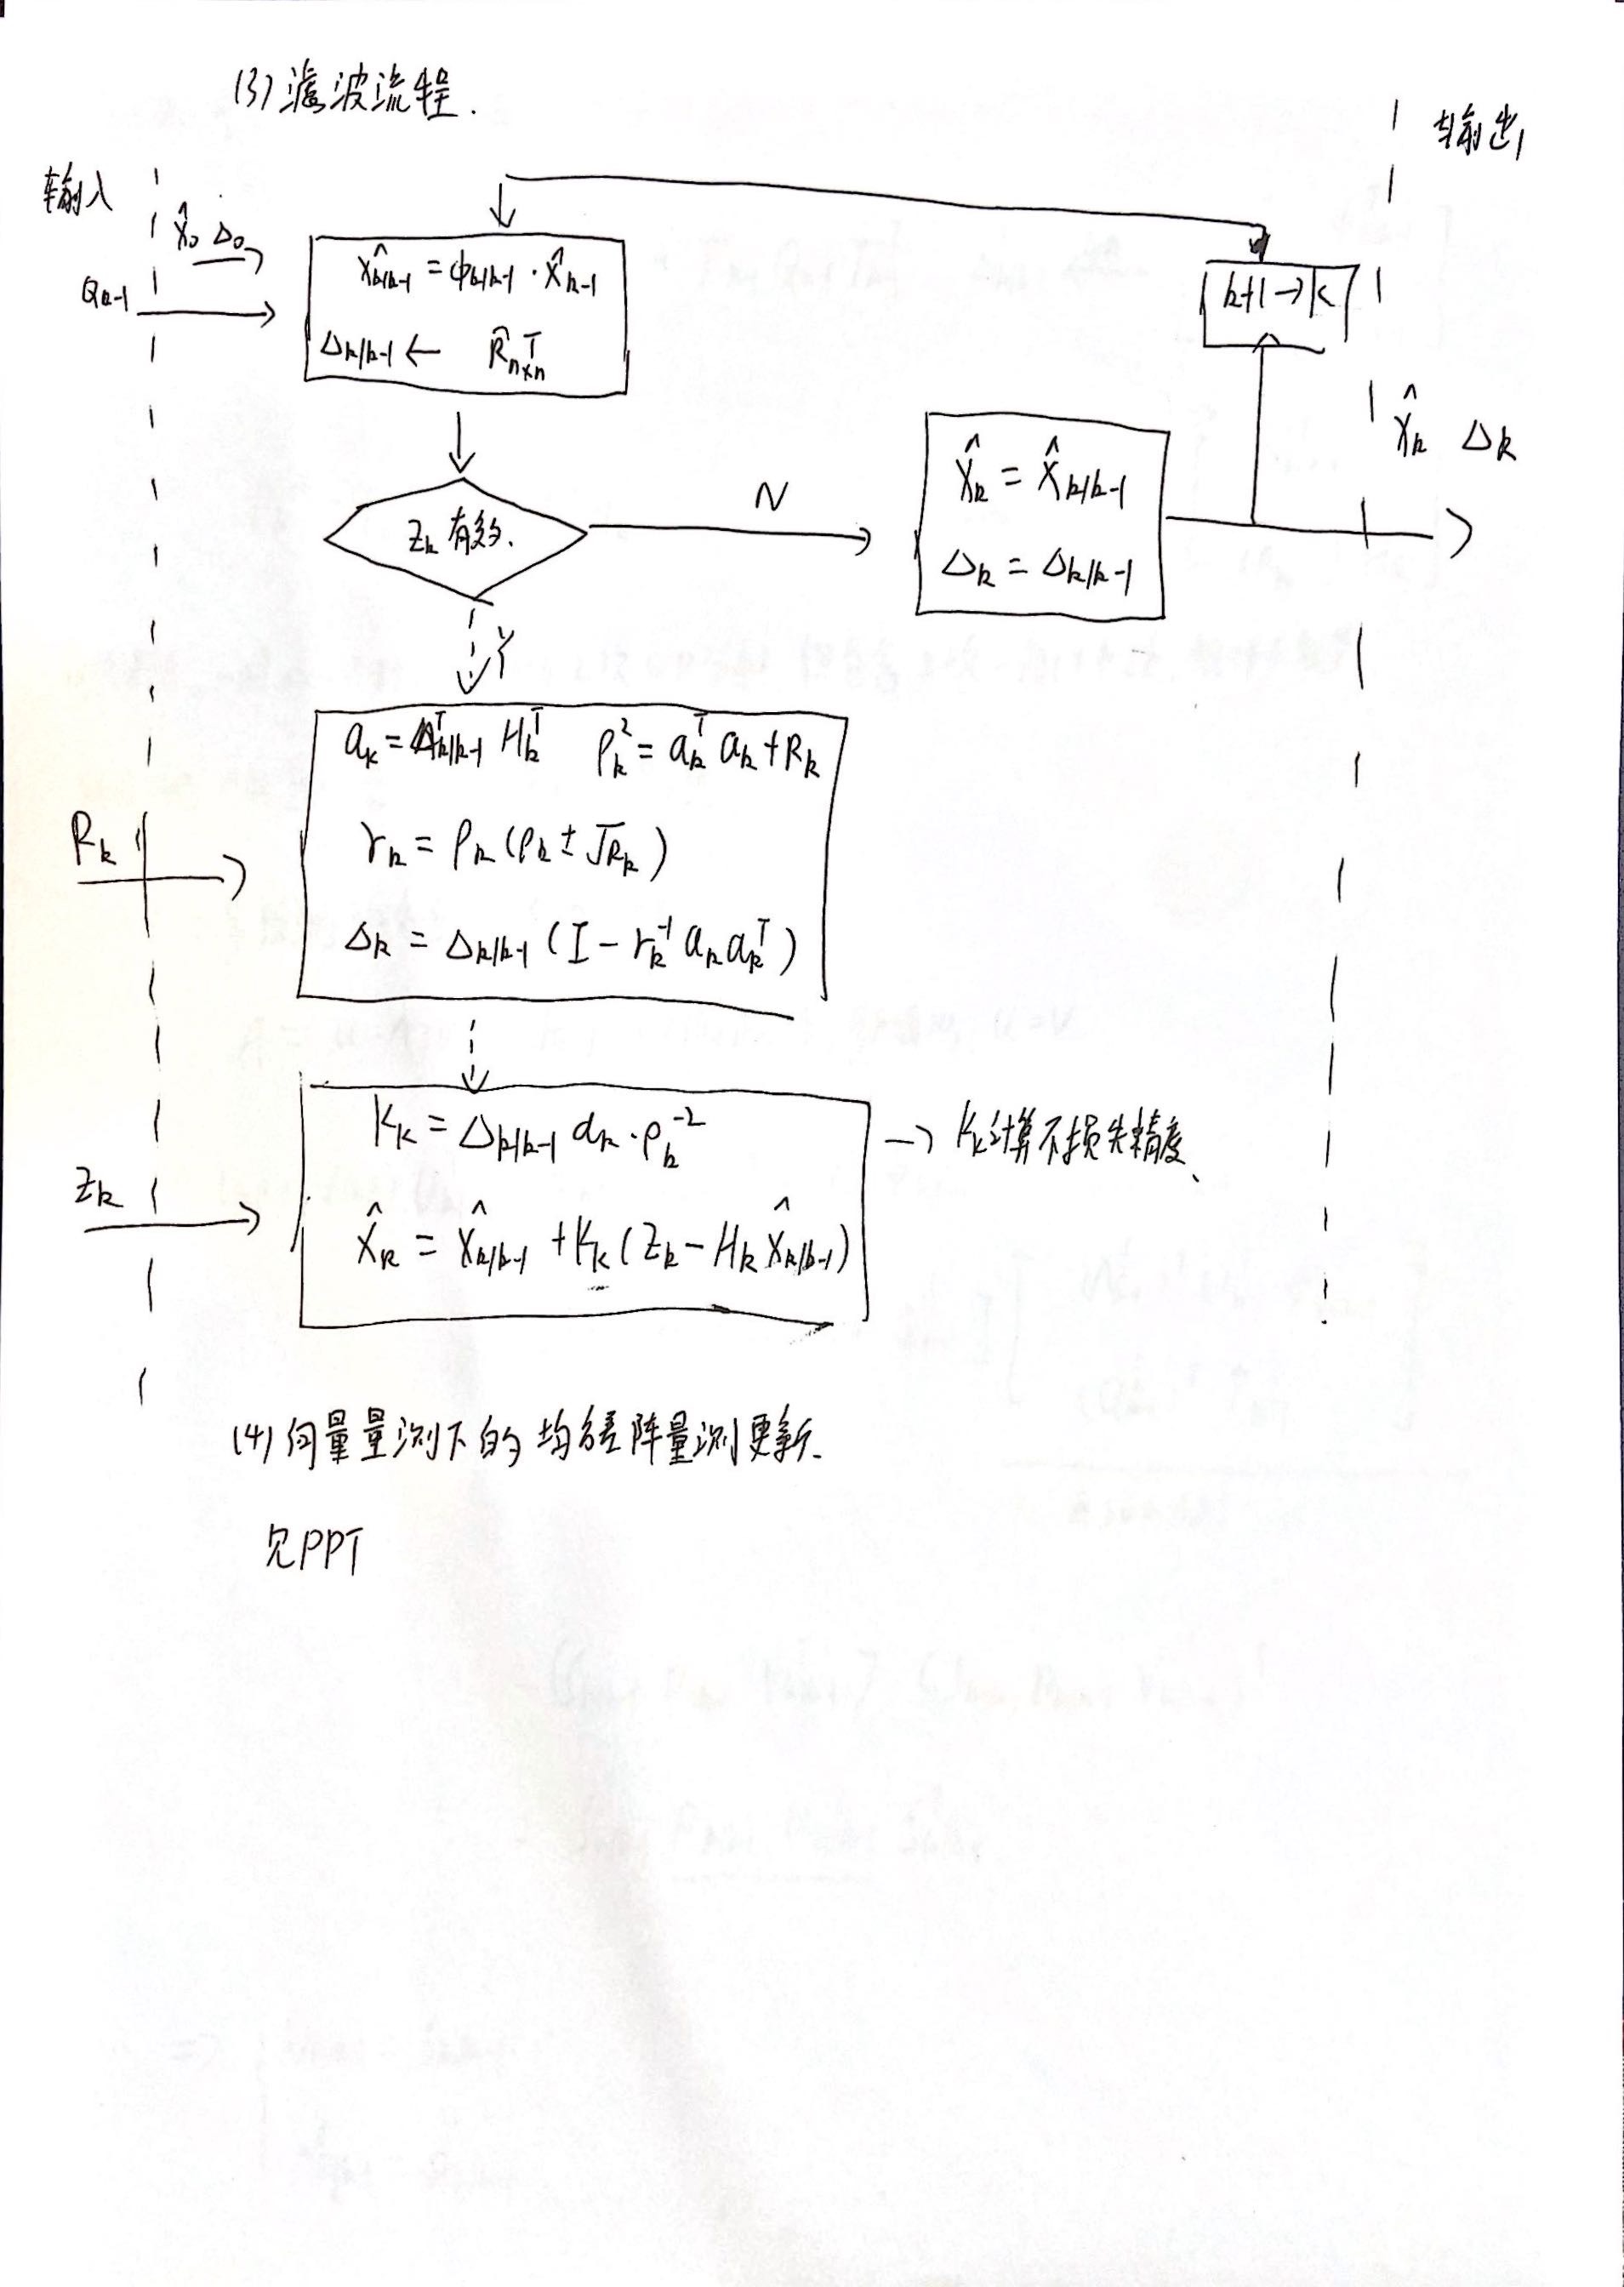 (3) 滤波流程.
输出
输入
X̂₀ Δ₀
Q_{k-1}
X̂_{k/k-1} = Φ_{k/k-1} · X̂_{k-1}
Δ_{k/k-1} ← R̂ᵀ_{n×n}
k+1→k
Z_k 有效.
N
X̂_k = X̂_{k/k-1}
Δ_k = Δ_{k/k-1}
X̂_k Δ_k
Y
a_k = Δᵀ_{k/k-1} H_kᵀ ρ_k² = a_kᵀ a_k + R_k
R_k
r_k = ρ_k (ρ_k ± √R_k)
Δ_k = Δ_{k/k-1} (I − r_k⁻¹ a_k a_kᵀ)
K_k = Δ_{k/k-1} a_k · ρ_k⁻² → K_k计算不损失精度、
Z_k
X̂_k = X̂_{k/k-1} + K_k (Z_k − H_k X̂_{k/k-1})
(4) 向量量测下的均方差阵量测更新.
见PPT